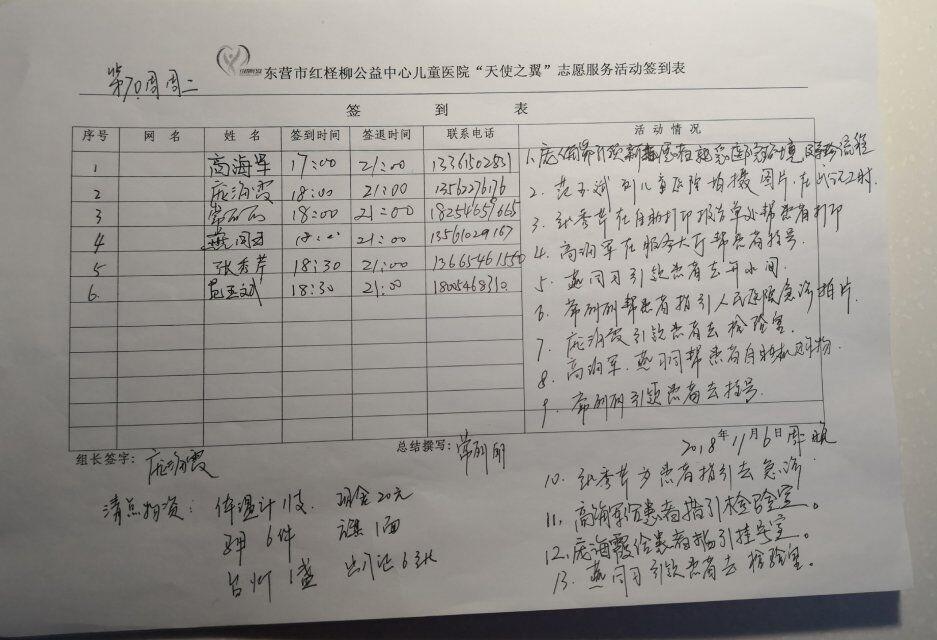 东营市红柽柳公益中心儿童医院“天使之翼”志愿服务活动签到表
第70周周二
签 到 表
序号 网 名 姓 名 签到时间 签退时间 联系电话 活 动 情 况
1 高海军 17:00 21:00
2 庞海霞 18:00 21:00 13562276176
3 18:00 21:00 18254657665
4 燕 21:00 13561029167
5 张秀芹 18:30 21:00
6. 范玉斌 18:30 21:00
2. 范玉斌到儿童医院拍摄图片,
3. 张秀芹在自助打印报告单处帮患者打印
4. 高海军在服务大厅帮患者挂号
5. 燕 引领患者去开水间.
6. 帮患者指引人民医院急诊拍片
7. 庞海霞引领患者去检验室.
8. 高海军. 燕 帮患者自动
9. 引领患者去挂号
组长签字: 庞海霞 总结撰写:
2018年11月6日周二晚
10. 张秀芹为患者指引去急诊
11, 高海军给患者指引检验室。
12. 庞海霞给患者指引挂号室。
13. 燕 引领患者去检验室。
清点物资: 体温计11支. 现金20元
马甲 6件 1面
台灯 1盏 出门证63张